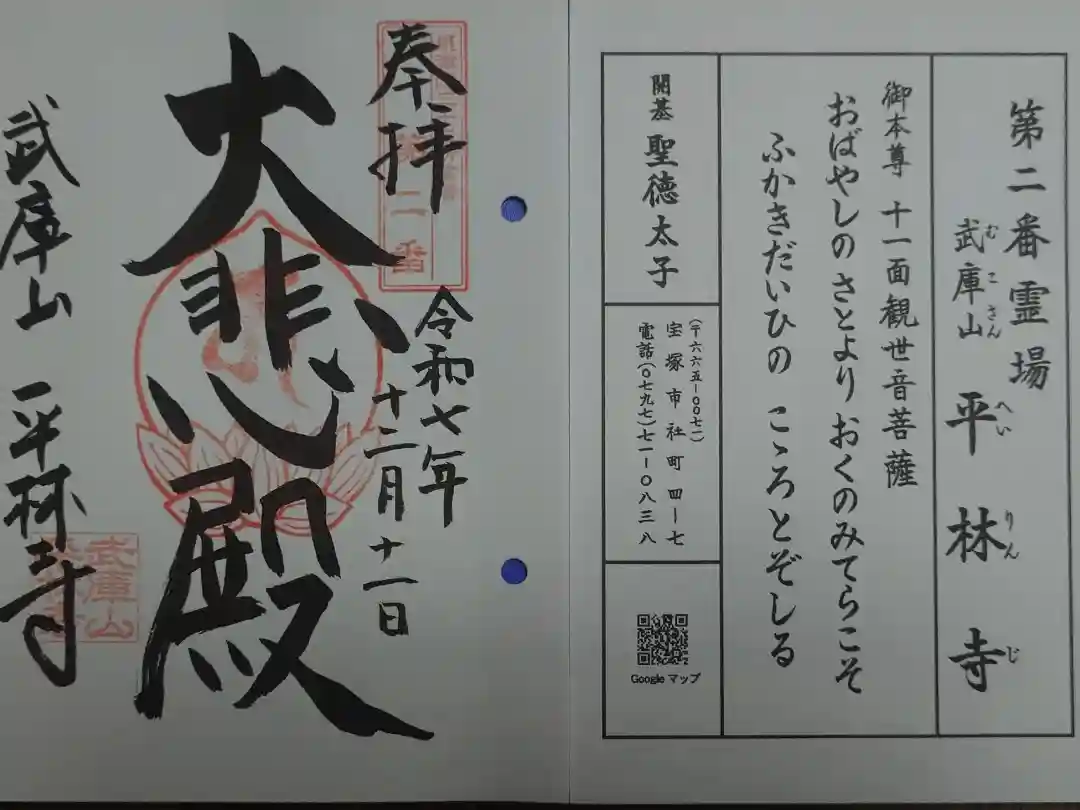 第二番霊場
武庫山 平林寺
むこさん へいりんじ
御本尊 十一面観世音菩薩
おばやしのさとより おくのみてらこそ
ふかきだいひの こゝろとぞしる
開基 聖徳太子
(〒六六五-〇〇七二)
宝塚市社町四-七
電話(〇七九七)七一-〇八三八
Googleマップ
奉拝
二番
令和七年
十二月十一日
大悲殿
武庫山 平林寺
武庫山